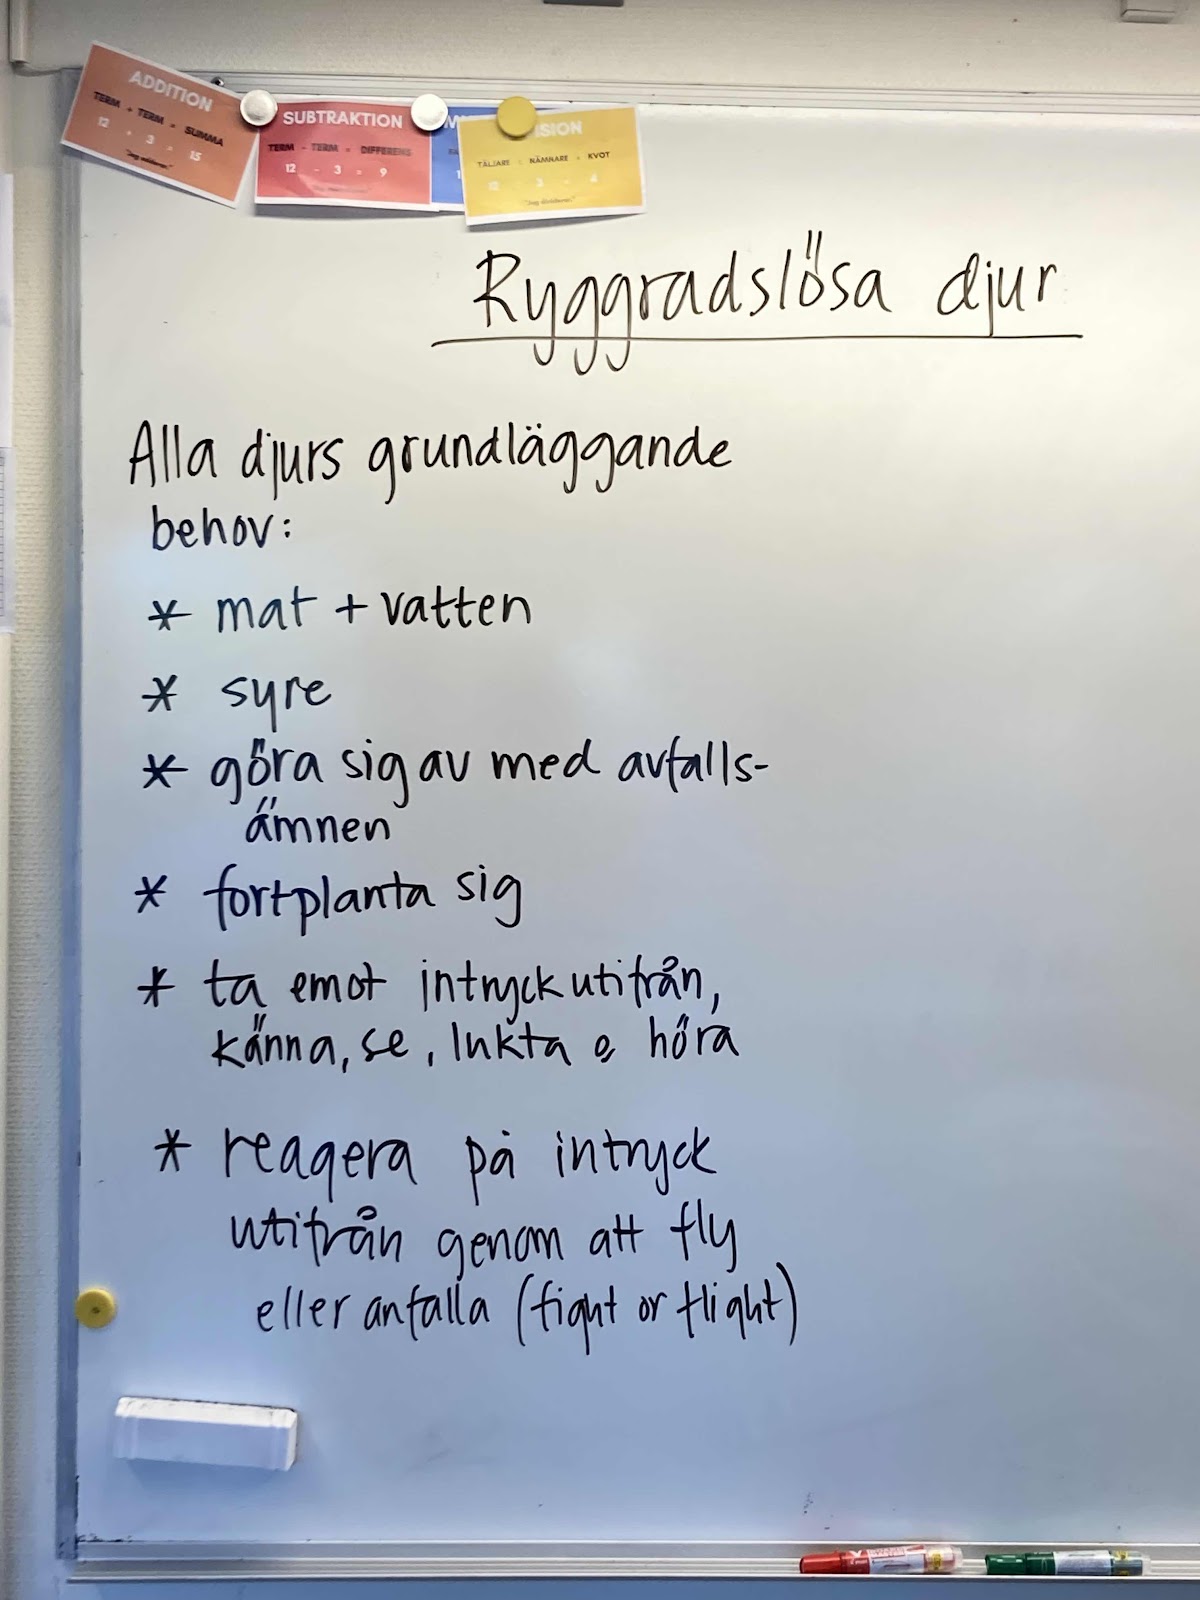 ADDITION
TERM + TERM = SUMMA
12 + 3 = 15
SUBTRAKTION
TERM - TERM = DIFFERENS
12 - 3 = 9
ISION
TÄLJARE : NÄMNARE = KVOT
12 3 4
"Jag dividerar."
Ryggradslösa djur
Alla djurs grundläggande
behov:
* mat + vatten
* syre
* göra sig av med avfalls-
ämnen
* fortplanta sig
* ta emot intryck utifrån,
känna, se, lukta o höra
* reagera på intryck
utifrån genom att fly
eller anfalla (fight or flight)